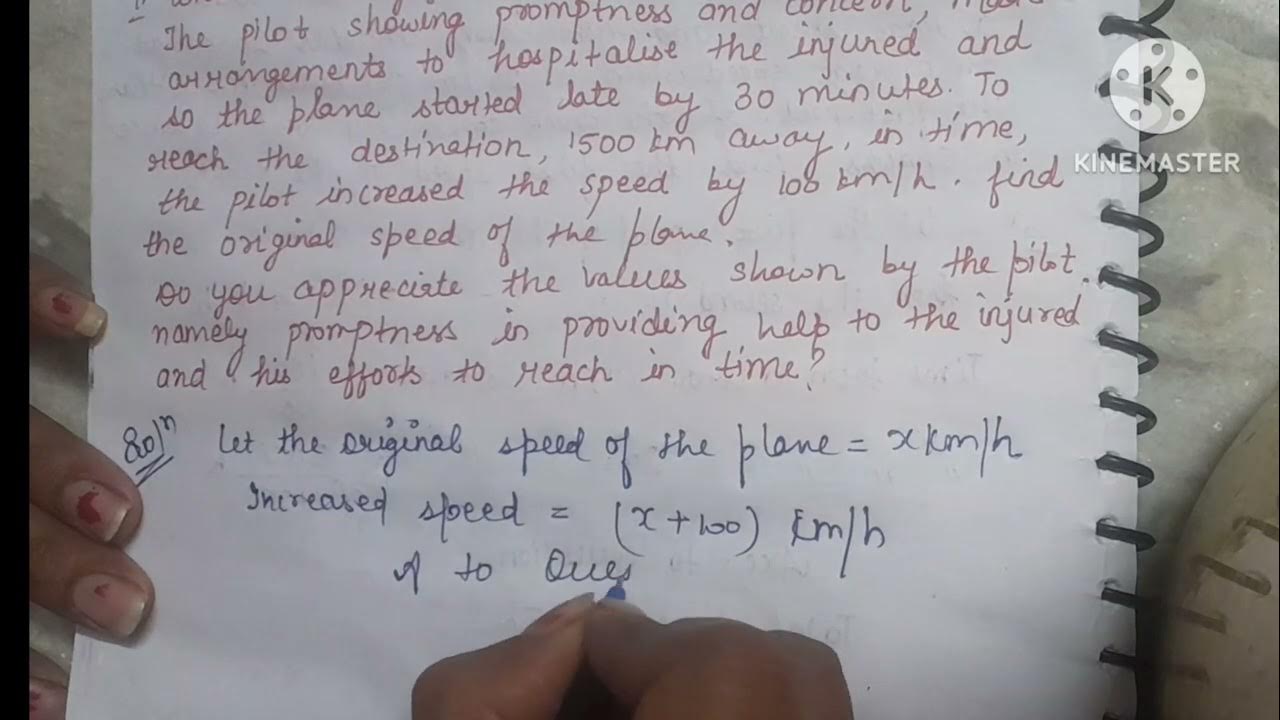 The pilot showing promptness and concern,
arrangements to hospitalise the injured and
so the plane started late by 30 minutes. To
reach the destination, 1500 km away, in time,
the pilot increased the speed by 100 km/h. find
the original speed of the plane.
Do you appreciate the values shown by the pilot
namely promptness in providing help to the injured
and his efforts to reach in time?
Solⁿ Let the original speed of the plane = x km/h
Increased speed = (x+100) km/h
A to Ques
K
KINEMASTER